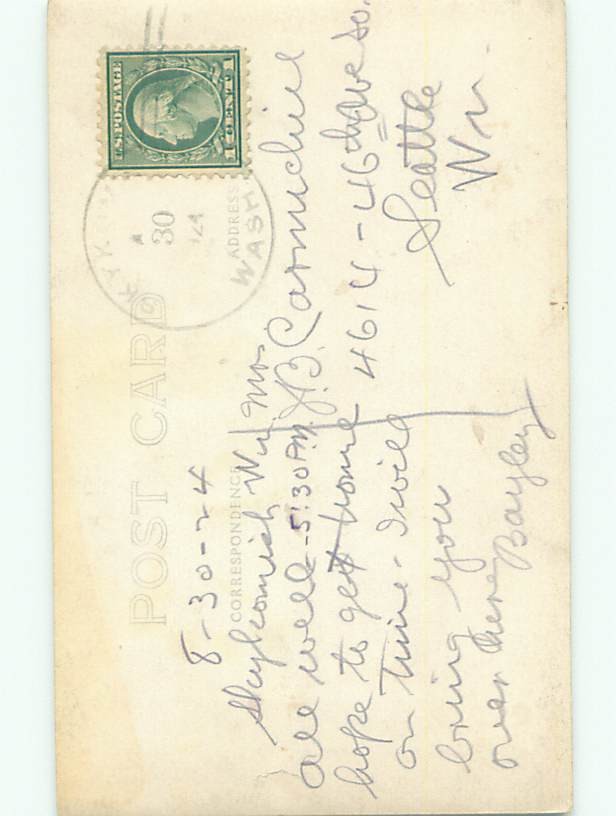 U.S. POSTAGE
1 CENT 1
POST CARD
CORRESPONDENCE
ADDRESS
SKYK
A
30
24
WASH
8-30-24
Skykomish Wn
all well - 5:30 P.M.
hope to get home
on time - I will
bring you
over here
Bayley
Mrs.
J.B. Carmichiel
4614 - 46th Ave So.
Seattle
Wn.